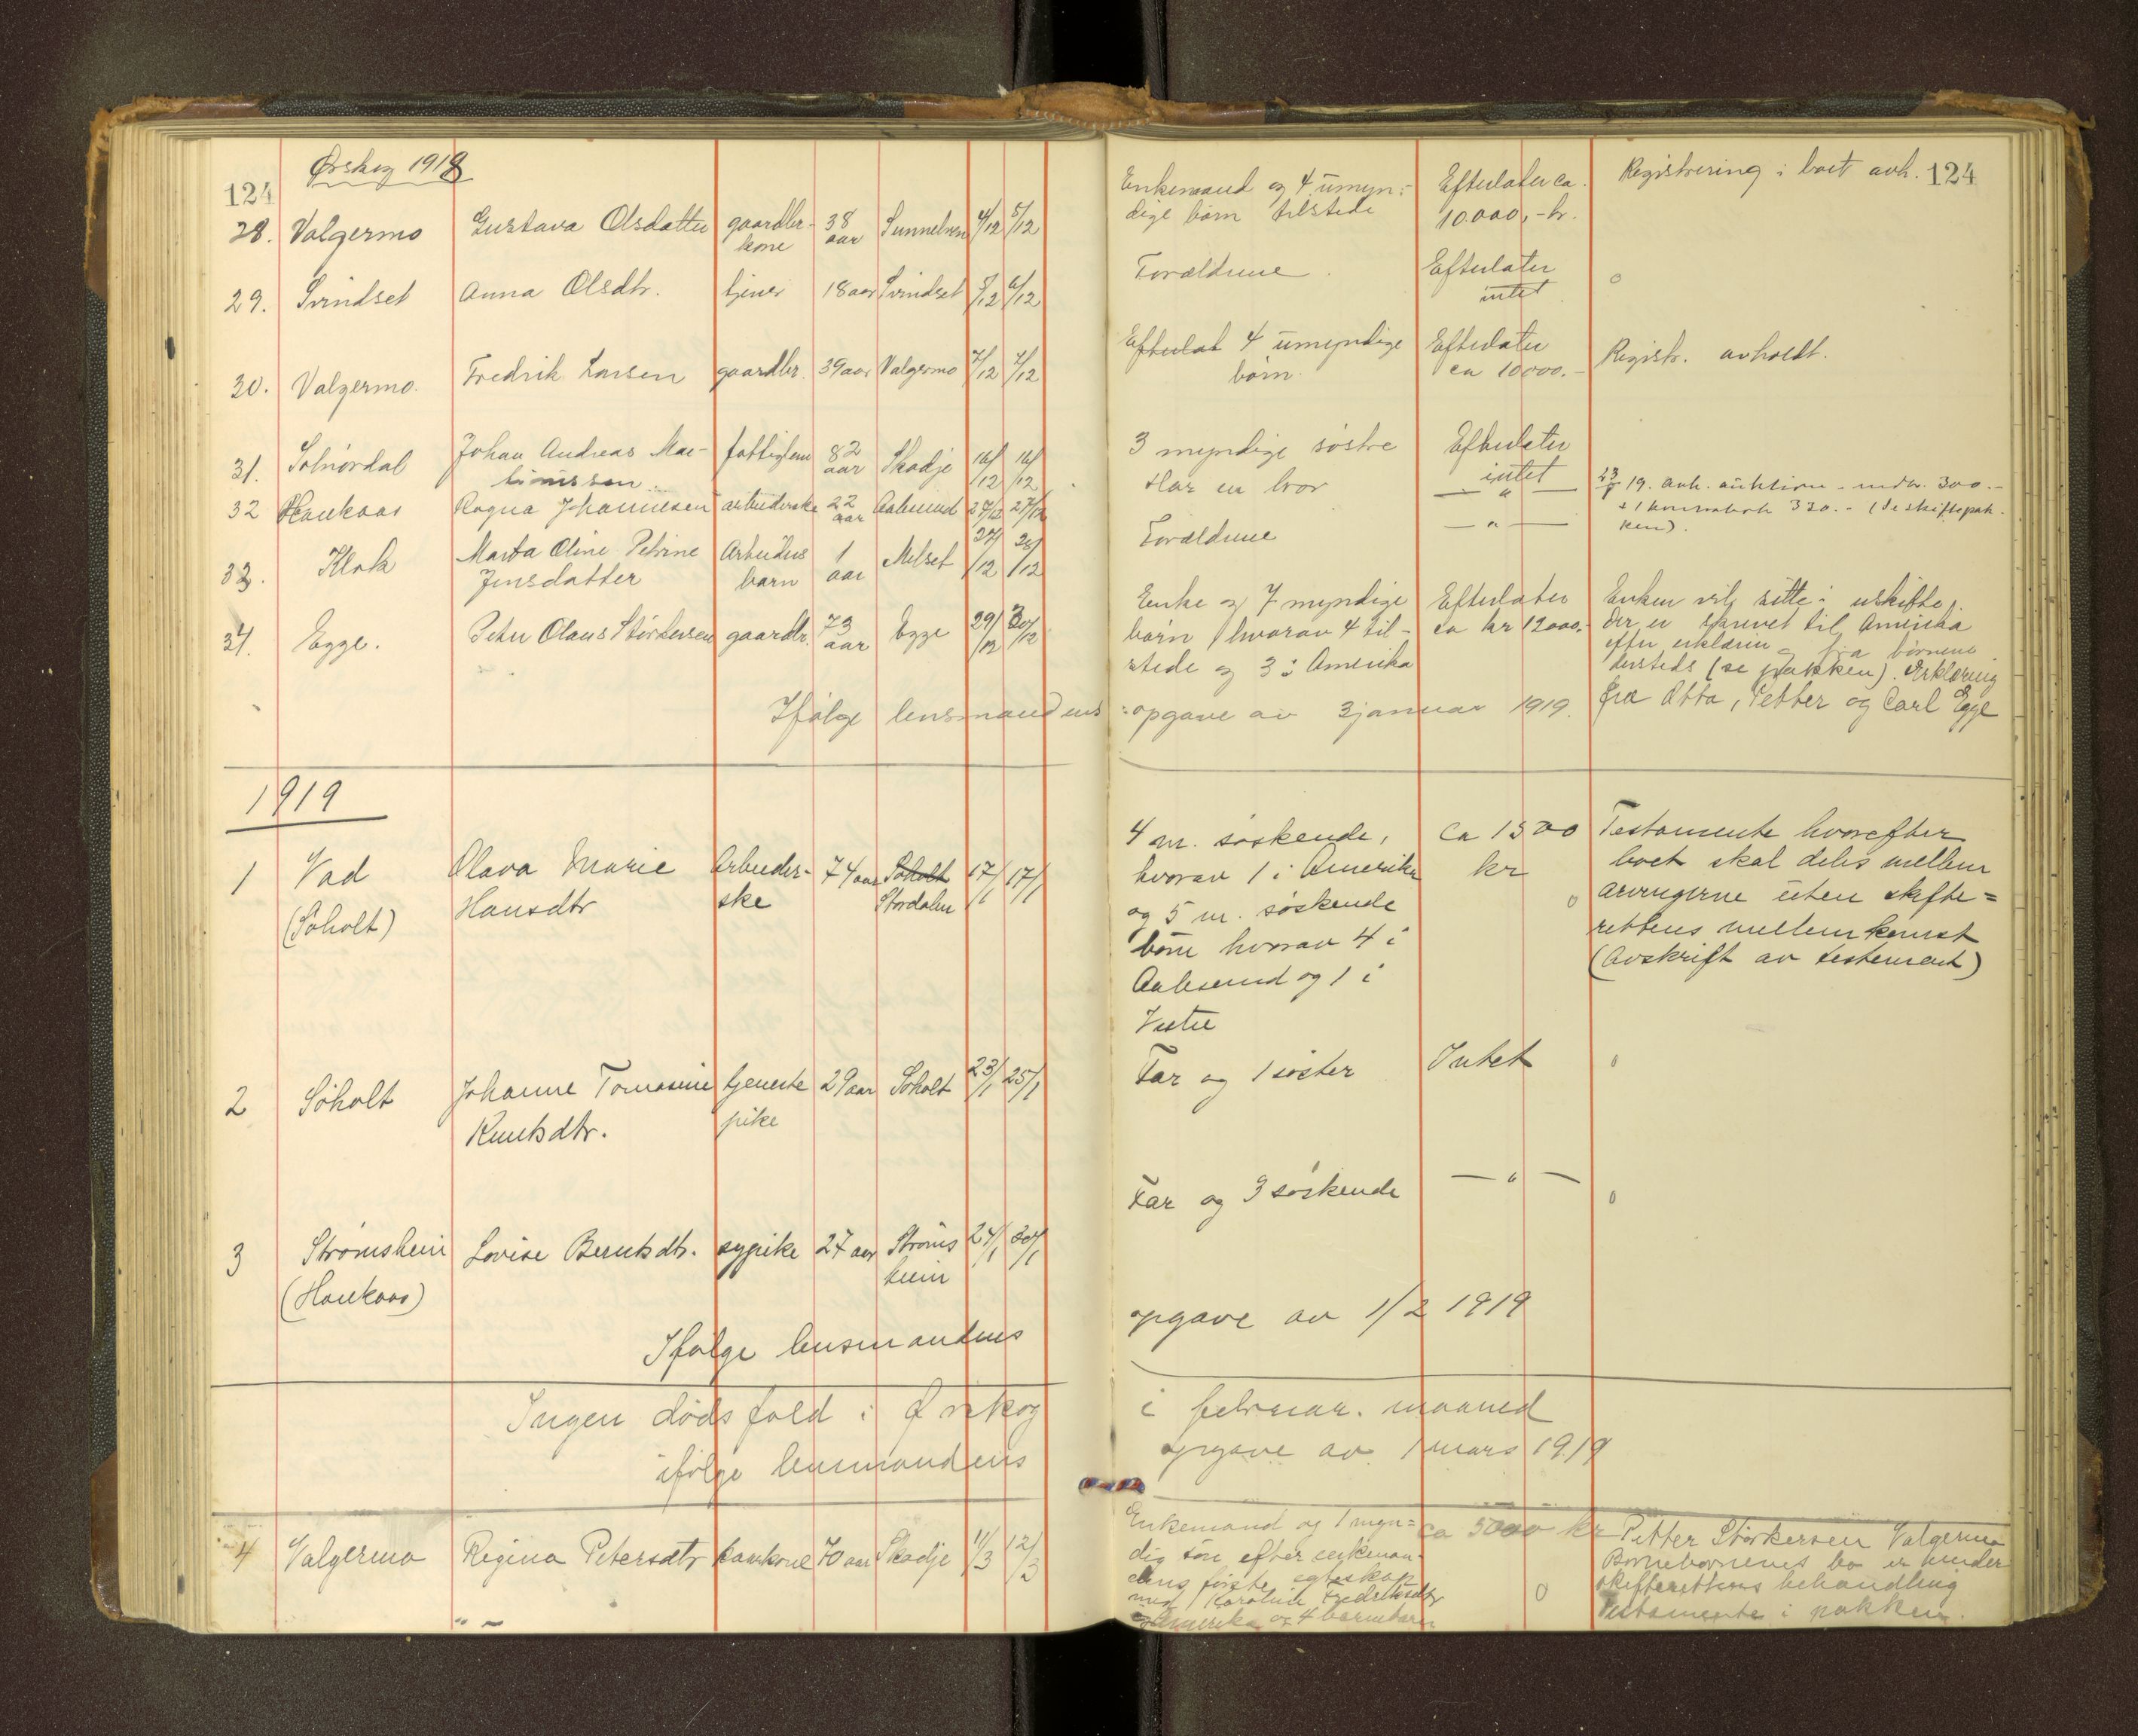 124
Ørskog 1918
28. Valgermo Gustava Olsdatter gaardbr.- 38 Sunnelven 4/12 5/12
kone aar
29. Svindset Anna Olsdtr. tjener 18 aar Svindset 5/12 6/12
30. Valgermo. Fredrik Larsen gaardbr. 39 aar Valgermo 7/12 7/12
31. Solnørdal Johan Andreas Mar- fattiglem 82 Skodje 14/12 14/12
tinussen aar
32 Haukaas Ragna Johannesen arbeiderske 22 Aalesund 27/12 27/12
aar
33. Klok Marta Oline Petrine Arbeider 1 Melset 27/12 28/12
Jensdatter barn aar
34. Egge. Peter Olaus Störkersen gaardbr. 73 Egge 29/12 30/12
aar
Ifølge lensmandens
1919
1 Vad Olava Marie Arbeider- 74 aar Søholt 17/1 17/1
(Søholt) Hansdtr ske Stordalen
2 Søholt Johanne Tomasine tjeneste 29 aar Søholt 23/1 25/1
Knutsdtr. pike
3 Strømsheim Lovise Berntsdtr. sypike 27 aar Strøms 24/1 30/1
(Haukaas) heim
Ifølge lensmandens
Ingen dødsfald i Ørskog
ifølge lensmandens
4 Valgermo Regine Petersdtr kaarkone 70 aar Skodje 11/3 12/3
" -
124
Enkemand og 4 umyn- Efterlater ca. Registrering i boet avh.
dige børn tilstede 10.000,- kr.
Forældrene. Efterlater o
intet
Efterlat 4 umyndige Efterlater Registr. avholdt.
børn. ca 10000.-
3 myndige søstre Efterlater
intet
Har en bror — " — 23/8 19. avh. auktion - 300.-
330.- (se skiftepak-
Forældrene — " — ken).
Enke og 7 myndige Efterlater Enken vil sitte i uskifte.
børn hvorav 4 til- ca kr 12000.- Der er skrevet til Amerika
stede og 3 i Amerika efter erklæring fra børnene
dersteds (se pakken). Erklæring
opgave av 3 januar 1919. fra Otto, Petter og Carl Egge
4 m. søskende, ca 1500 Testamente hvorefter
hvorav 1 i Amerika kr boet skal deles mellem
og 5 m. søskende o arvingerne uten skifte=
børn hvorav 4 i rettens mellemkomst
Aalesund og 1 i (Avskrift av testement)
Vestre
Far og 1 søster Intet o
Far og 3 søskende — " — o
opgave av 1/2 1919
i februar. maaned
opgave av 1 mars 1919
Enkemand og 1 myn= ca 5000 kr Petter Störkersen Valgermo
dig søn efter enkeman- Barnebarnenes bo er under
dens første egteskap skifterettens behandling
med Karoline Fredriksdtr o Testamente i pakken.
Amerika og 4 barnebarn